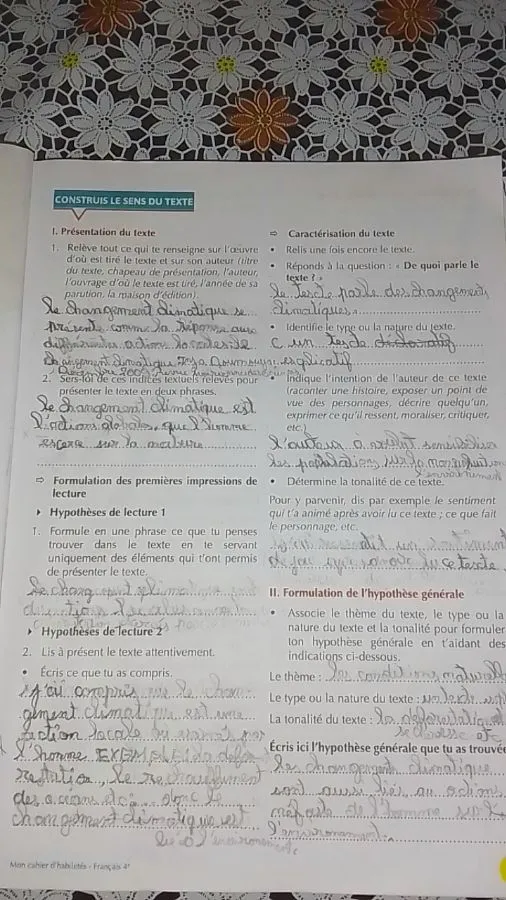 CONSTRUIS LE SENS DU TEXTE
I. Présentation du texte
1. Relève tout ce qui te renseigne sur l'œuvre
d'où est tiré le texte et sur son auteur (titre
du texte, chapeau de présentation, l'auteur,
l'ouvrage d'où le texte est tiré, l'année de sa
parution, la maison d'édition).
le changement climatique se
présente comme la réponse aux
différentes action
changement climatique
Décembre 2009
2. Sers-toi de ces indices textuels relevés pour
présenter le texte en deux phrases.
le changement climatique est
l'actions globales, que l'homme
escerce sur la nature
⇨ Formulation des premières impressions de
lecture
▶ Hypothèses de lecture 1
1. Formule en une phrase ce que tu penses
trouver dans le texte en te servant
uniquement des éléments qui t'ont permis
de présenter le texte.
le changement climatique
▶ Hypothèses de lecture 2
2. Lis à présent le texte attentivement.
• Écris ce que tu as compris.
j'ai compris que le chan
gement climatique est une
action locale
l'homme EXEMPLE: la défo
restation, le rechauffement
des océans etc... donc le
changement climatique est
lié à l'environnement.
Mon cahier d'habiletés - Français 4e
⇨ Caractérisation du texte
• Relis une fois encore le texte.
• Réponds à la question : « De quoi parle le
texte ? »
le texte parle des changement
climatiques.
• Identifie le type ou la nature du texte.
C un
explicatif
• Indique l'intention de l'auteur de ce texte
(raconter une histoire, exposer un point de
vue des personnages, décrire quelqu'un,
exprimer ce qu'il ressent, moraliser, critiquer,
etc.)
l'auteur a voulut sensibiliser
les populations sur la
l'environnement
• Détermine la tonalité de ce texte.
Pour y parvenir, dis par exemple le sentiment
qui t'a animé après avoir lu ce texte ; ce que fait
le personnage, etc.
un sentiment
ce texte
II. Formulation de l'hypothèse générale
• Associe le thème du texte, le type ou la
nature du texte et la tonalité pour formuler
ton hypothèse générale en t'aidant des
indications ci-dessous.
Le thème : les conditions naturelle
Le type ou la nature du texte : un texte
La tonalité du texte : la déforestation
etc
Écris ici l'hypothèse générale que tu as trouvée
les changement climatique
sont aussi liés au actions
méfaste de l'homme sur
l'environnement.